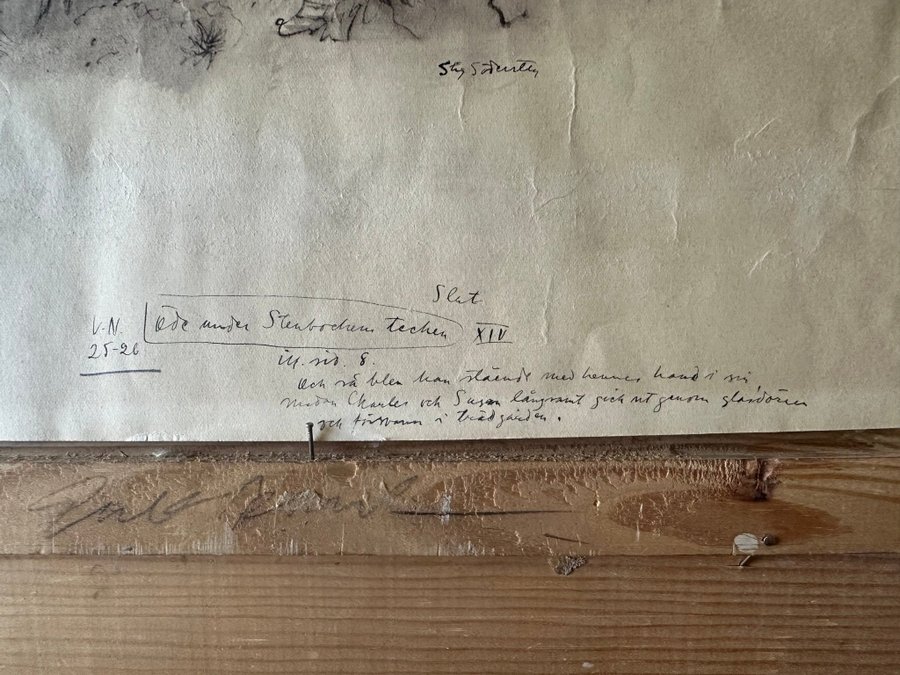 Stig Södersten
Slut.
V.-N. Öde under Stenbockens tecken XIV
25-26
ill. sid. 8.
Och så blev han stående med hennes hand i sin,
medan Charles och Susan långsamt gick ut genom glasdörren
och försvann i trädgården.